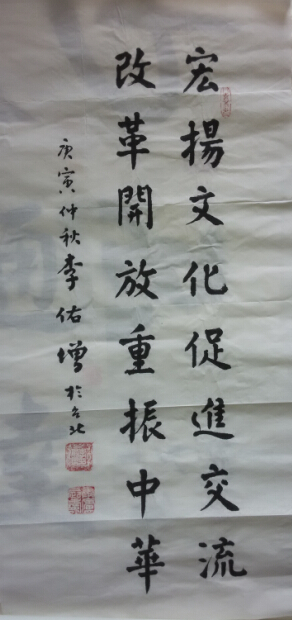 宏揚文化促進交流
改革開放重振中華
庚寅仲秋李佑增於台北